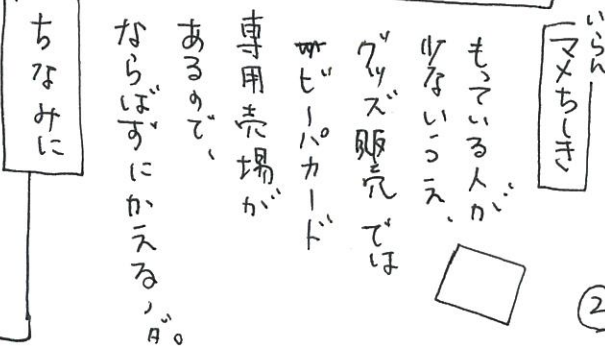 いらん
マメちしき
もっている人が
少ないうえ、
グッズ販売では
ビーパカード
専用売場が
あるので、
ならばずにかえるのだ。
ちなみに
②